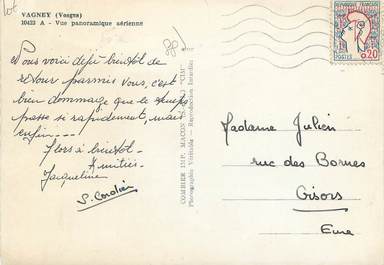 VAGNEY (Vosges)
10423 A - Vue panoramique aérienne
Nous voici déjà bientôt de
retour parmis vous, c'est
bien dommage que le temps
passe si rapidement, mais
enfin----
Alors à bientôt -
Amitiés -
Jacqueline
S. Cordier
COMBIER IMP. MACON
Photographie Véritable - Reproduction Interdite
"CIM"
0,20
POSTES
Madame Julien
rue des Bornes
Gisors
Eure